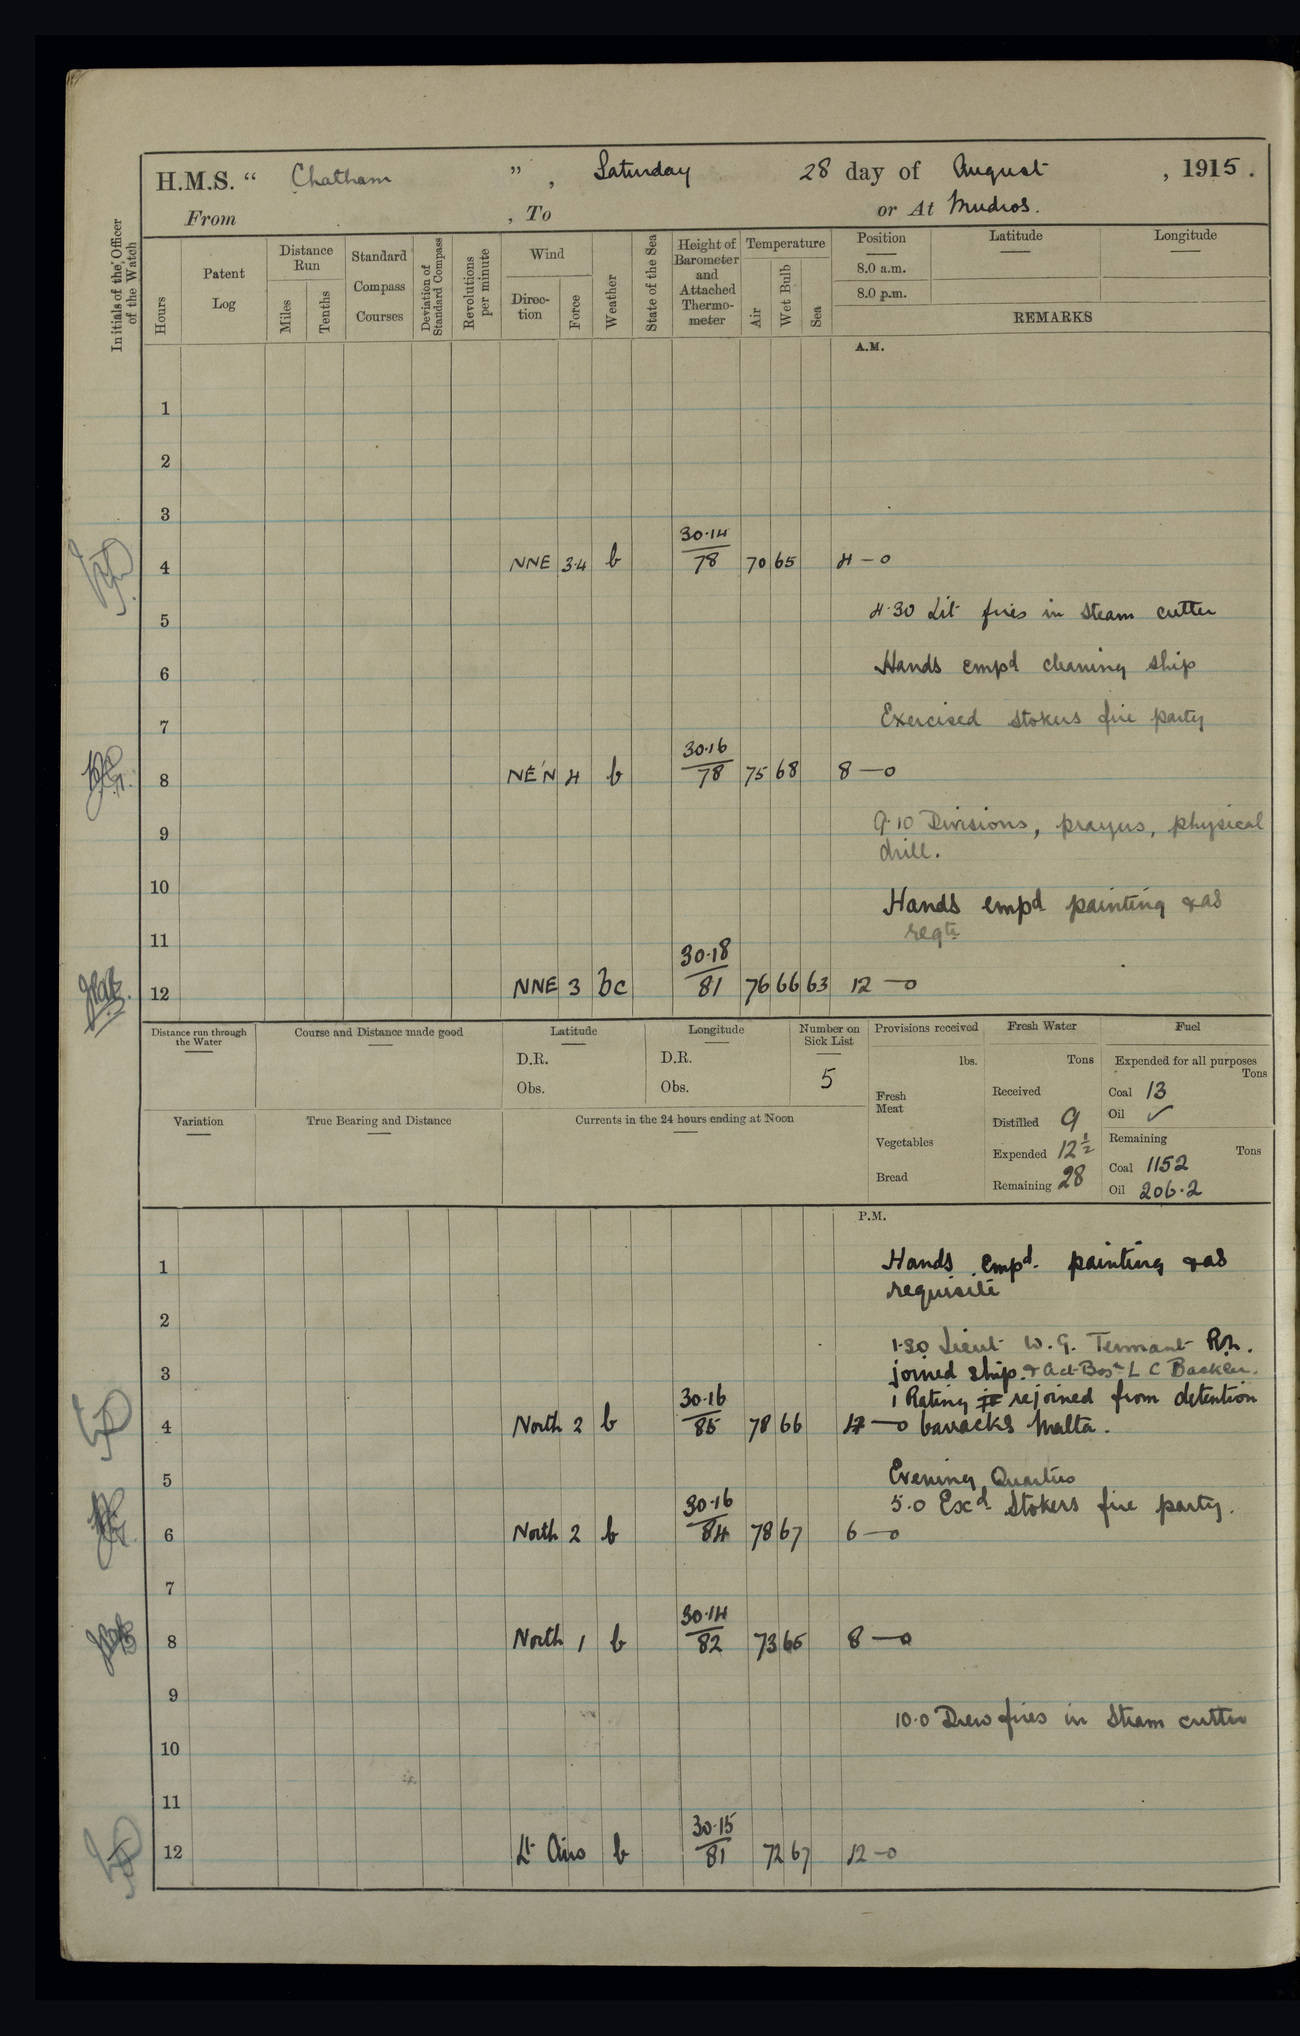 H.M.S. “ Chatham ” , Saturday 28 day of August , 1915 .
From , To or At Mudros.
Initials of the Officer of the Watch
Hours
Patent Log
Distance Run
Miles
Tenths
Standard Compass Courses
Deviation of Standard Compass
Revolutions per minute
Wind
Direc-tion
Force
Weather
State of the Sea
Height of Barometer and Attached Thermo-meter
Temperature
Air
Wet Bulb
Sea
Position
Latitude
Longitude
8.0 a.m.
8.0 p.m.
REMARKS
A.M.
1
2
3
30·14
4 NNE 3·4 b 78 70 65 4 — 0
4·30 Lit fires in steam cutter
5
Hands empd cleaning ship
6
Exercised stokers fire party
7
30·16
8 NE'N 4 b 78 75 68 8 — 0
9·10 Divisions, prayers, physical
9
drill.
10
Hands empd painting & as
reqte
11
30·18
12 NNE 3 bc 81 76 66 63 12 — 0
Distance run through the Water
Course and Distance made good
Latitude
D.R.
Obs.
Longitude
D.R.
Obs.
Number on Sick List
5
Provisions received
lbs.
Fresh Meat
Vegetables
Bread
Fresh Water
Tons
Received
Distilled 9
Expended 12½
Remaining 28
Fuel
Expended for all purposes
Tons
Coal 13
Oil ✓
Remaining
Tons
Coal 1152
Oil 206·2
Variation
True Bearing and Distance
Currents in the 24 hours ending at Noon
P.M.
1 Hands empd. painting & as
requisite
2
1·30 Lieut W. G. Tennant R.N.
3 joined ship. & Act Bosn L C Backler.
1 Rating rejoined from detention
30·16
4 North 2 b 85 78 66 4 — 0 barracks Malta.
5 Evening Quarters
5.0 Excd Stokers fire party.
30·16
6 North 2 b 84 78 67 6 — 0
7
30·14
8 North 1 b 82 73 65 8 — 0
9
10·0 Drew fires in Steam cutter
10
11
30·15
12 Lt Airs b 81 72 67 12 — 0